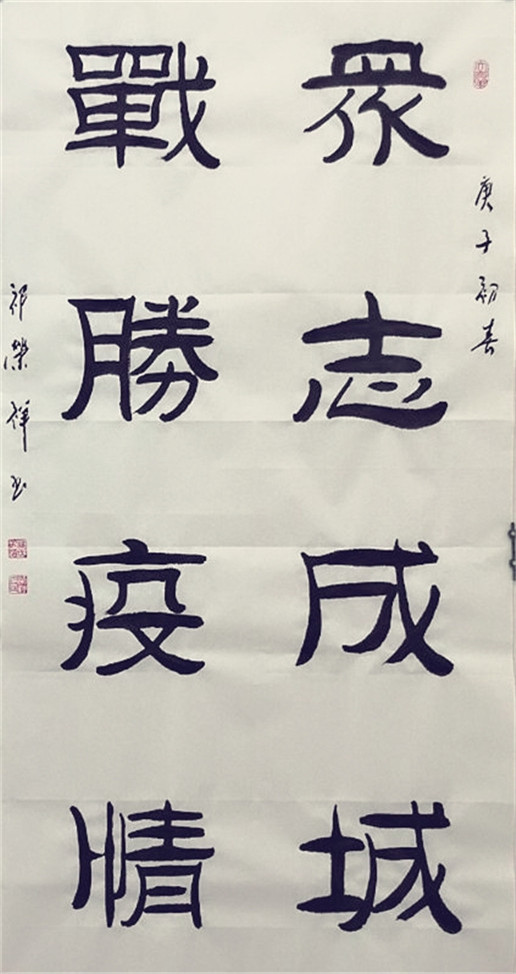 庚子初春
眾志成城
戰勝疫情
祁榮祥书